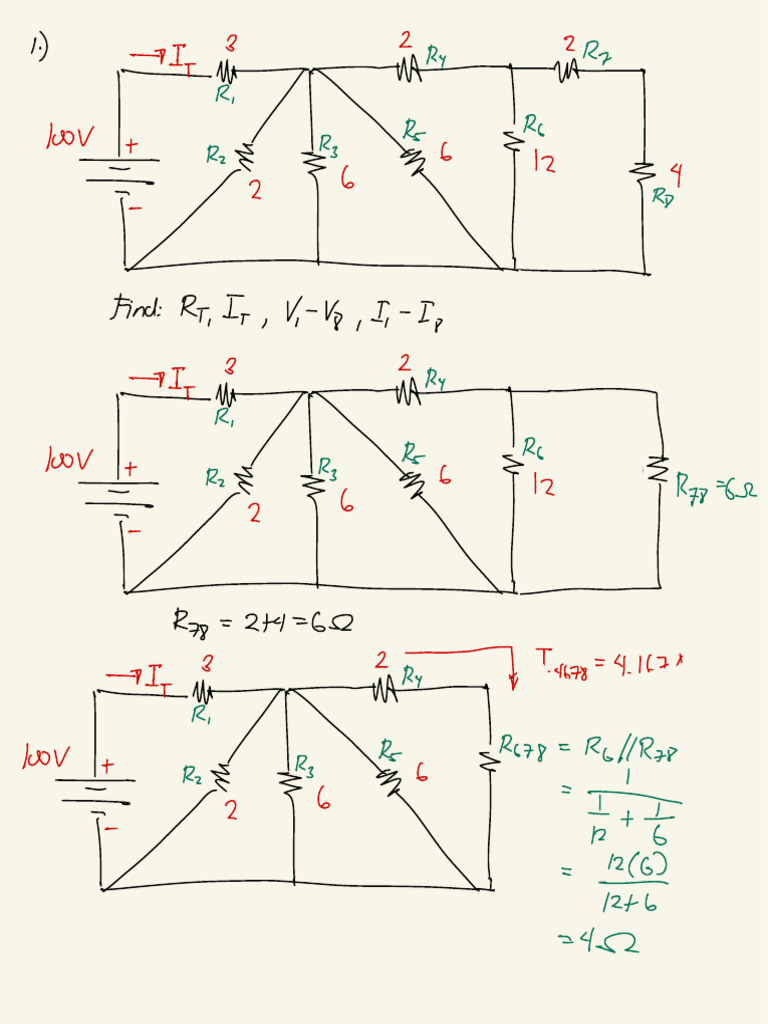 1.)
→ I_T 3 R₁ 2 R₄ 2 R₇
100V + - R₂ 2 R₃ 6 R₅ 6 R₆ 12 4 R₈
Find: R_T, I_T, V₁-V₈, I₁-I₈
→ I_T 3 R₁ 2 R₄
100V + - R₂ 2 R₃ 6 R₅ 6 R₆ 12 R₇₈=6Ω
R₇₈ = 2+4 = 6Ω
→ I_T 3 R₁ 2 R₄ = 4.167
100V + - R₂ 2 R₃ 6 R₅ 6
R₆₇₈ = R₆//R₇₈
= 1/(1/12 + 1/6)
= 12(6)/(12+6)
=4Ω